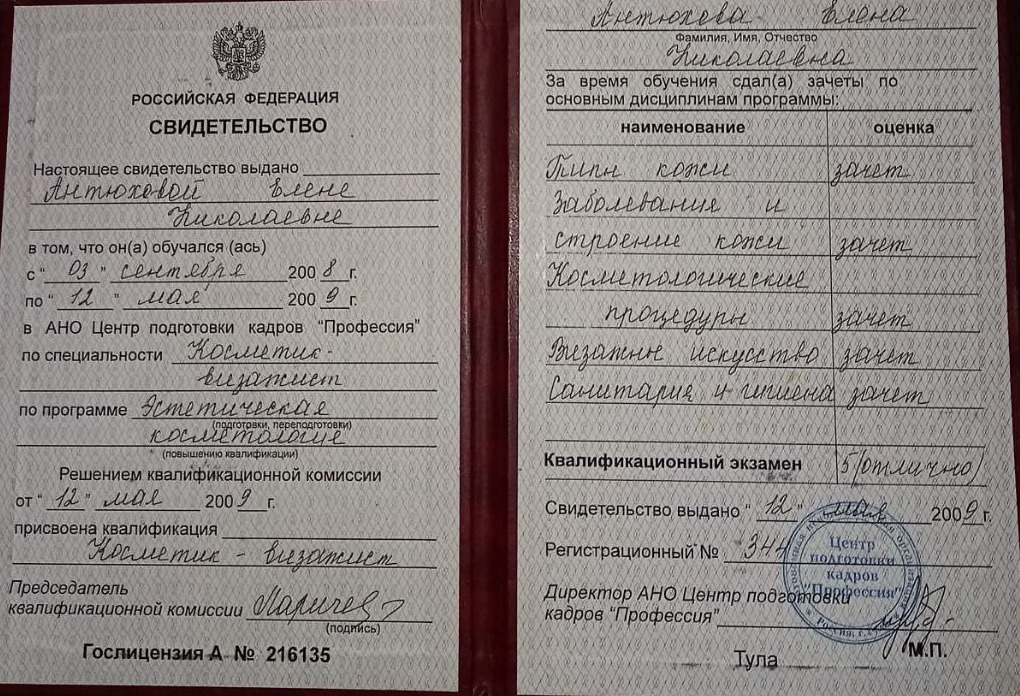 РОССИЙСКАЯ ФЕДЕРАЦИЯ
СВИДЕТЕЛЬСТВО
Настоящее свидетельство выдано
Антюховой Елене
Николаевне
в том, что он(а) обучался (ась)
с “ 03 ” сентября 2008 г.
по “ 12 ” мая 2009 г.
в АНО Центр подготовки кадров “Профессия”
по специальности Косметик-
визажист
по программе Эстетическая
(подготовки, переподготовки)
косметология
(повышению квалификации)
Решением квалификационной комиссии
от “ 12 ” мая 2009 г.
присвоена квалификация
Косметик - визажист
Председатель
квалификационной комиссии
(подпись)
Гослицензия А № 216135
Антюхова Елена
Фамилия, Имя, Отчество
Николаевна
За время обучения сдал(а) зачеты по
основным дисциплинам программы:
наименование оценка
Типы кожи зачет
Заболевания и
строение кожи зачет
Косметологические
процедуры зачет
Визажное искусство зачет
Санитария и гигиена зачет
Квалификационный экзамен 5 (отлично)
Свидетельство выдано “ 12 ” мая 2009 г.
Регистрационный № 344
Директор АНО Центр подготовки
кадров “Профессия”
Центр
подготовки
кадров
"Профессия"
М.П.
Тула